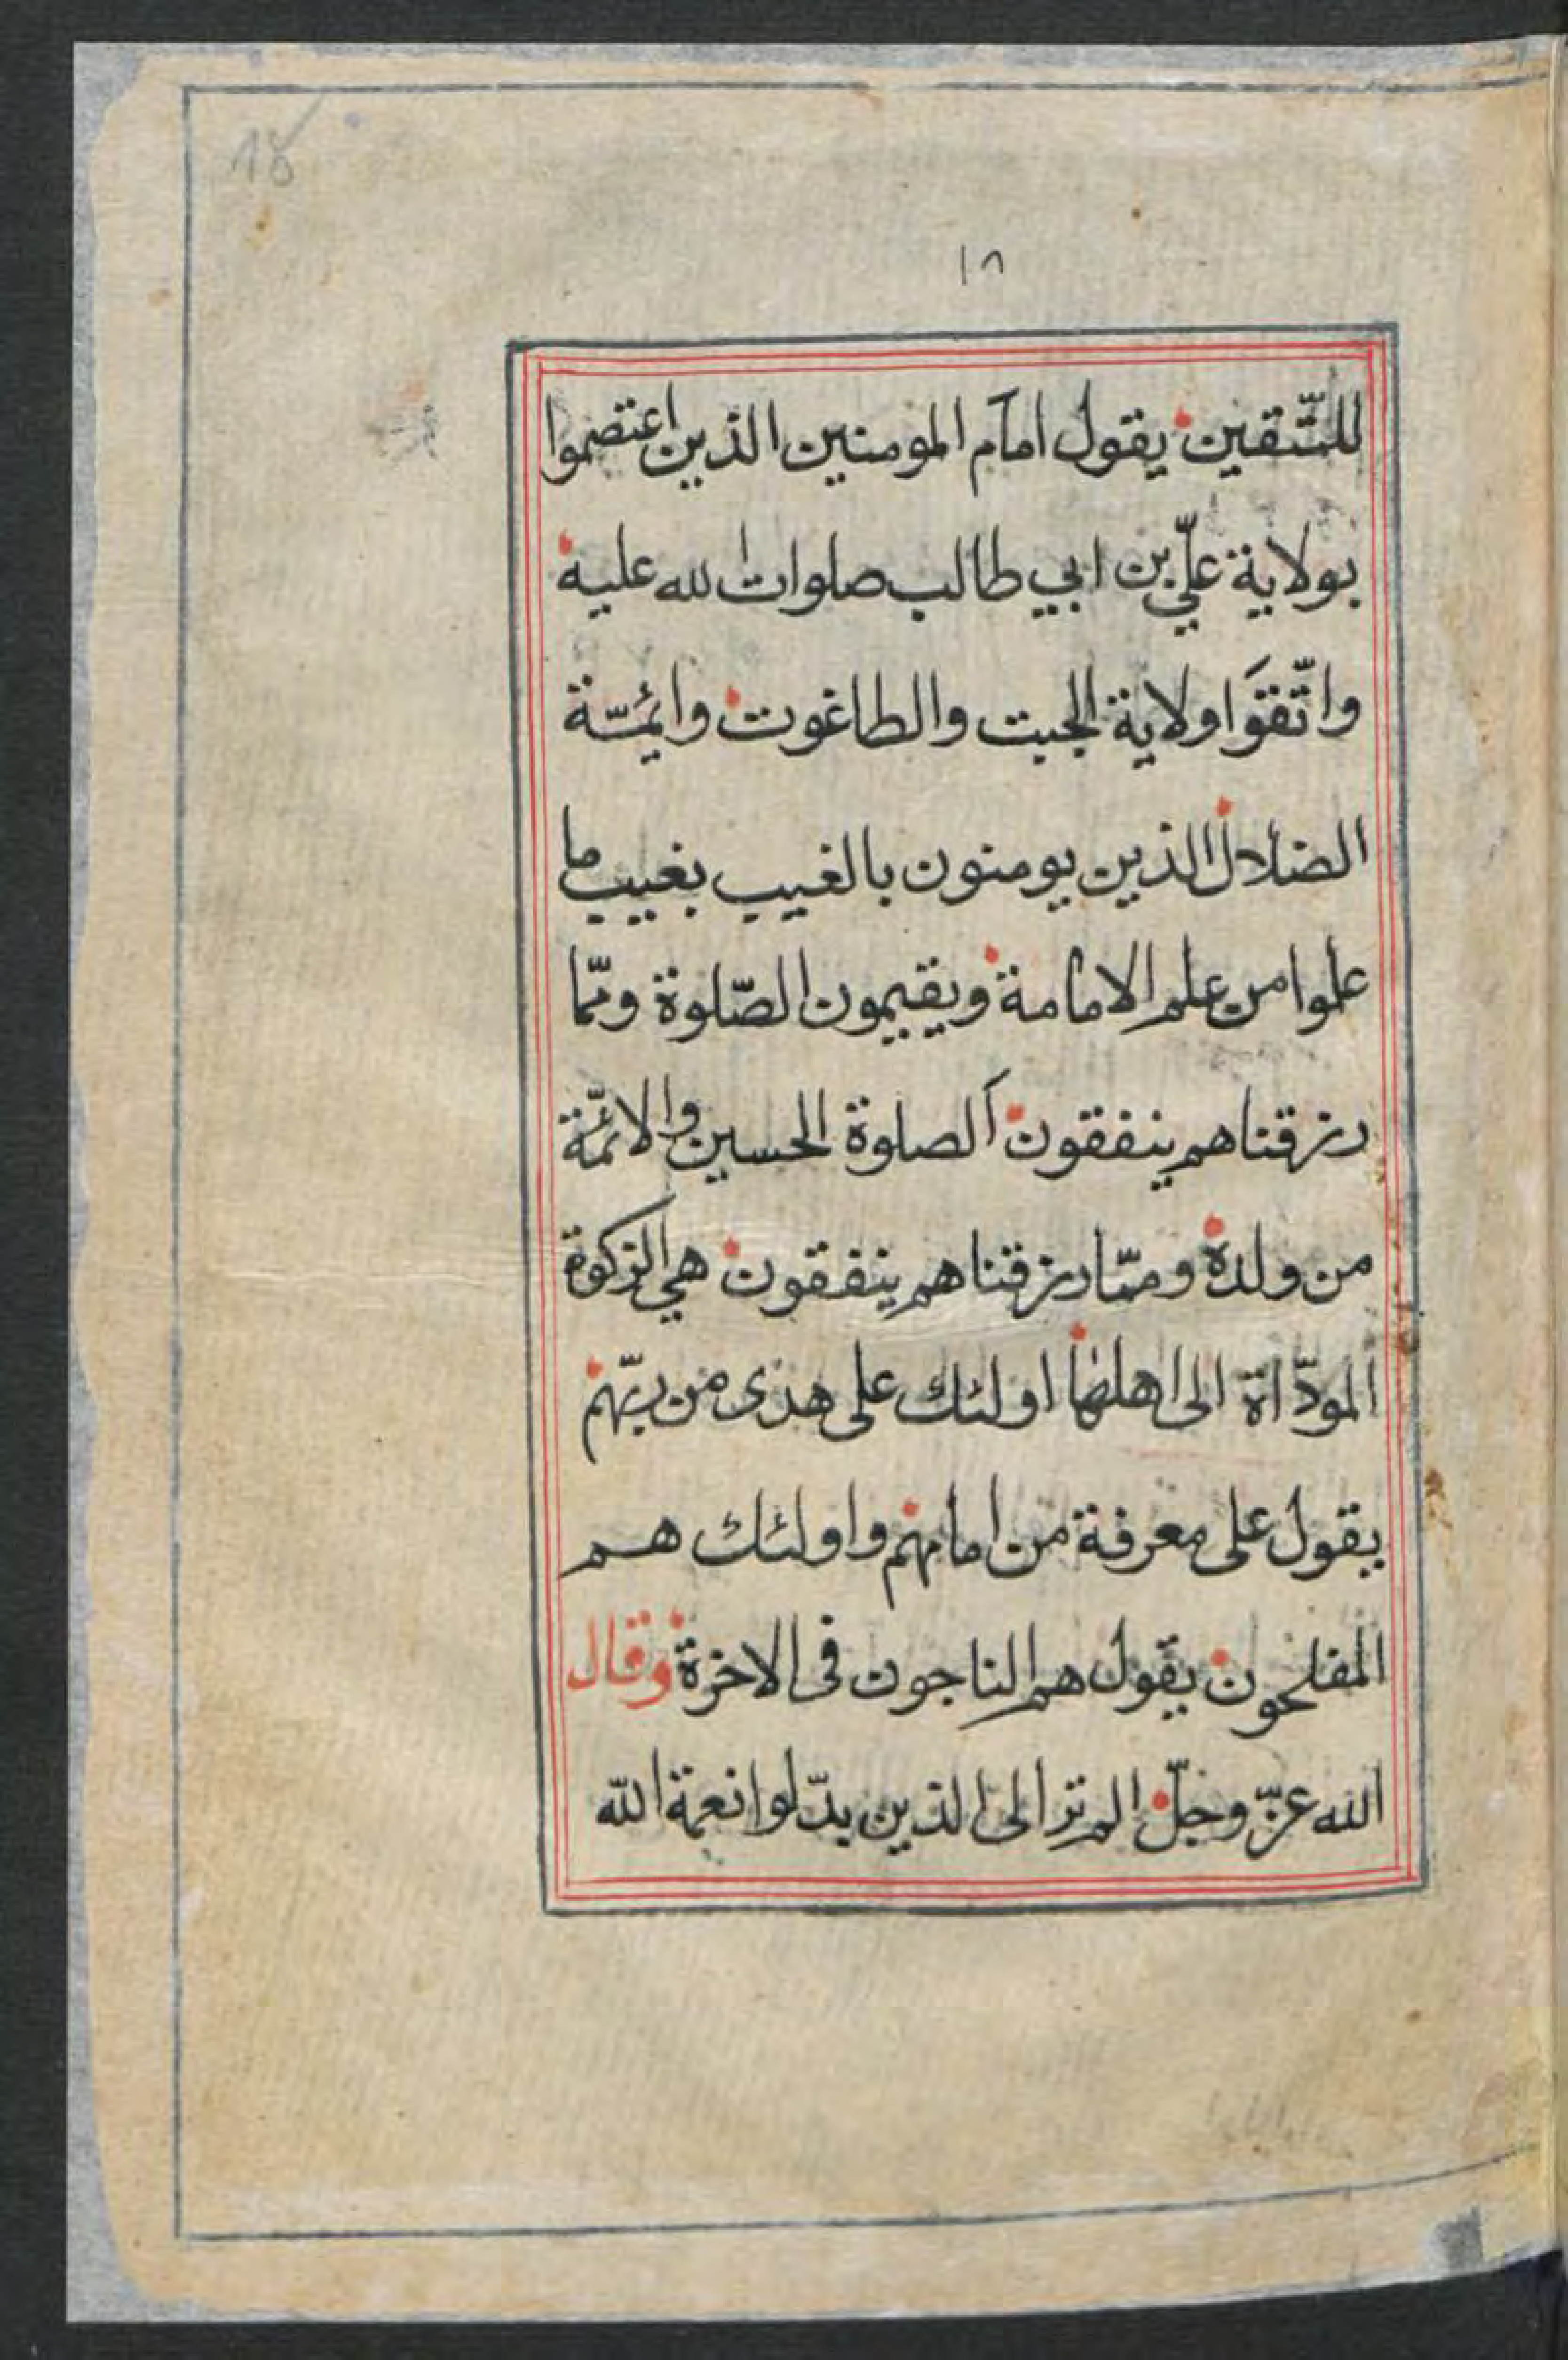 18
١٨
للمتّقين يقول امآم المومنين الذين اعتصموا
بولاية علّي بن ابي طالب صلوات الله عليه
واتّقوَا ولاية الجبت والطاغوت وائمّة
الضلال الذين يومنون بالغيب بغيب ما
علموا من علم الامامة ويقيمون الصّلوة وممّا
رزقناهم ينفقون اَلصلوة الحسين والائمّة
من ولده وممّا رزقناهم ينفقون هي الزكوة
المودّاة الى اهلها اولئك على هدى من ربّهم
يقول على معرفة من امامهم واولئك هم
المفلحون يقول هم الناجون فى الاخرة وقال
الله عزّ وجلّ الم تر الى الذين بدّلوا نعمة الله